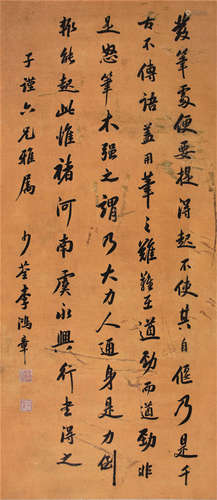 發筆處便要提得起不使其自偃乃是千
古不傳語蓋用筆之難難至遒勁而遒勁非
是怒筆木強之謂乃大力人通身是力倒
輒能起此惟褚河南虞永興行書得之
子謹六兄雅屬 少荃李鴻章